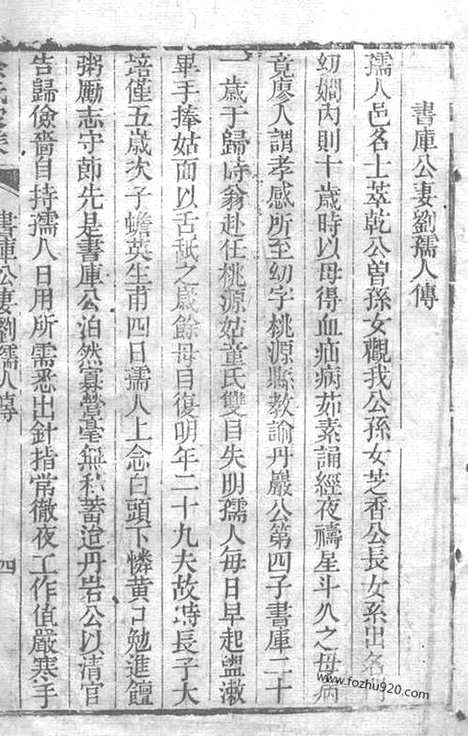 書庫公妻劉孺人傳
孺人邑名士萃乾公曾孫女觀我公孫女芝香公長女系出名
幼嫻內則十歲時以母得血疝病茹素誦經夜禱星斗久之母病
竟廖人謂孝感所至幼字桃源縣教諭丹巖公第四子書庫二十
一歲于歸時翁赴任桃源姑童氏雙目失明孺人每日早起盥漱
畢手捧姑面以舌舐之歲餘母目復明年二十九夫故時長子大
培僅五歲次子蟾英生甫四日孺人上念白頭下憐黃口勉進饘
粥勵志守節先是書庫公泊然寡營毫無私蓄迨丹岩公以清官
告歸儉嗇自持孺人日用所需悉出針指常徹夜工作值嚴寒手
書庫公妻劉孺人傳
四
www.fozhu920.com